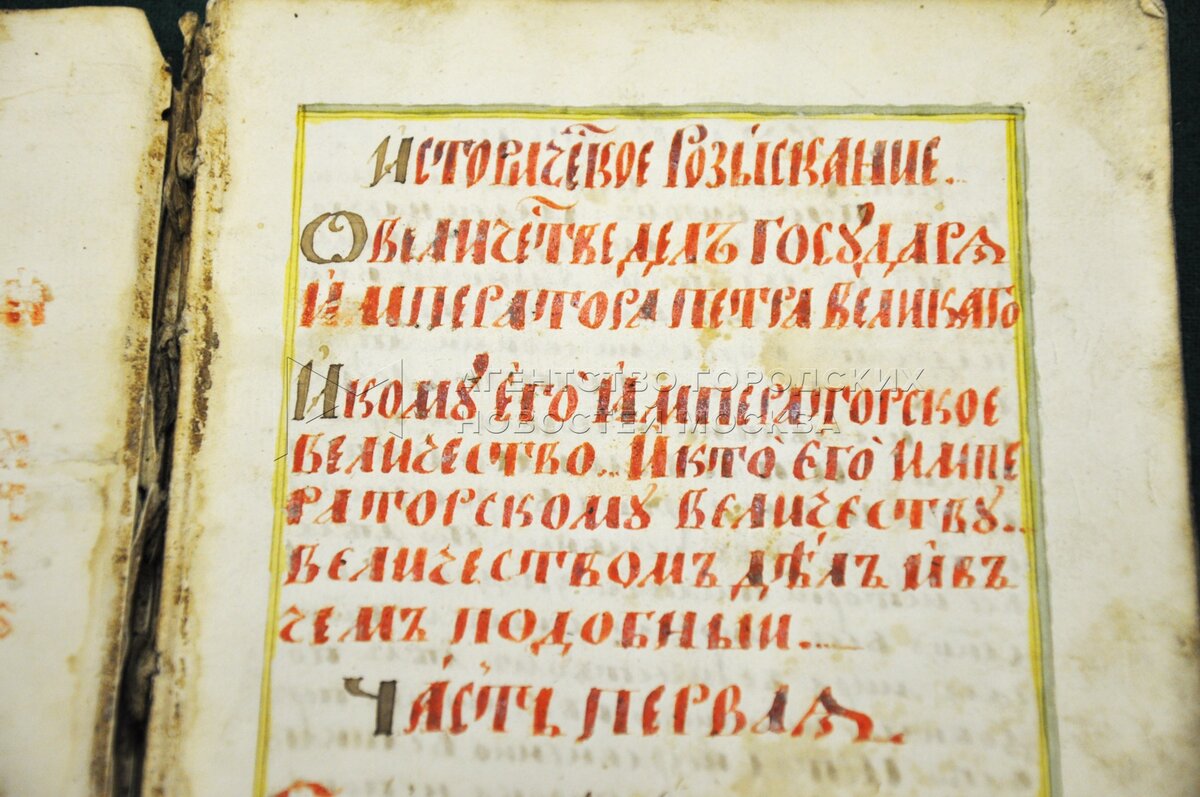 Историческое Розыскание.
О величестве делъ государя
И императора петра великаго
И кому его Императорское
величество... И кто его импе
раторскому величеству..
величествомъ дѣлъ и въ
чемъ подобныи....
Часть первая.
АГЕНТСТВО ГОРОДСКИХ
НОВОСТЕЙ МОСКВА